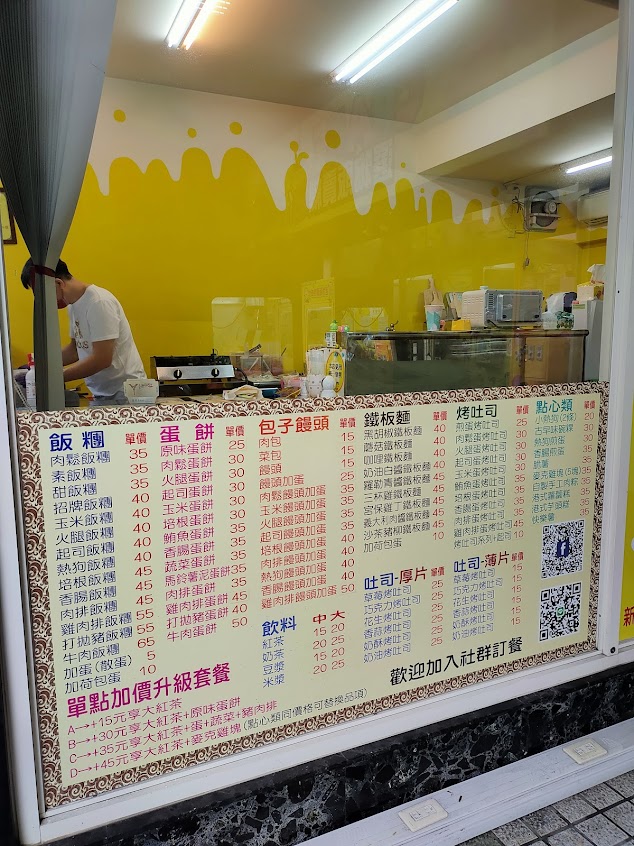 飯糰 單價
肉鬆飯糰 35
素飯糰 35
甜飯糰 35
招牌飯糰 40
玉米飯糰 40
火腿飯糰 40
起司飯糰 40
熱狗飯糰 45
培根飯糰 45
香腸飯糰 45
肉排飯糰 45
雞肉排飯糰 55
打拋豬飯糰 55
牛肉飯糰 65
加蛋(散蛋) 5
加荷包蛋 10
蛋餅 單價
原味蛋餅 25
肉鬆蛋餅 30
火腿蛋餅 30
起司蛋餅 30
玉米蛋餅 30
培根蛋餅 30
鮪魚蛋餅 35
香腸蛋餅 35
蔬菜蛋餅 35
馬鈴薯泥蛋餅 35
肉排蛋餅 35
雞肉排蛋餅 45
打拋豬蛋餅 40
牛肉蛋餅 50
包子饅頭 單價
肉包 15
菜包 15
饅頭 15
饅頭加蛋
肉鬆饅頭加蛋
玉米饅頭加蛋
火腿饅頭加蛋
起司饅頭加蛋
培根饅頭加蛋
肉排饅頭加蛋
熱狗饅頭加蛋
香腸饅頭加蛋 40
雞肉排饅頭加蛋 50
飲料 中 大
紅茶 15 20
奶茶 20 25
豆漿 15 20
米漿 20 25
鐵板麵 單價
黑胡椒鐵板麵 40
蘑菇鐵板麵 40
咖哩鐵板麵 40
奶油白醬鐵板麵
羅勒青醬鐵板麵
三杯雞鐵板麵
宮保雞丁鐵板麵 45
義大利肉醬鐵板麵
沙茶豬柳鐵板麵 45
加荷包蛋 10
烤吐司 單價
煎蛋烤吐司 25
肉鬆烤吐司 30
火腿烤吐司 30
起司烤吐司 30
玉米烤吐司 30
培根烤吐司
鮪魚烤吐司 35
香腸烤吐司 35
肉排烤吐司
雞肉排烤吐司 45
烤吐司系列+起司 10
點心類 單價
小熱狗(2條) 20
熱狗煎蛋
香腸煎蛋
麥克雞塊(5塊) 35
港式蘿蔔糕 35
港式芋頭糕 35
快樂薯 35
吐司-厚片 單價
草莓烤吐司 25
巧克力烤吐司 25
花生烤吐司 25
香蒜烤吐司 25
奶酥烤吐司 25
奶油烤吐司 25
吐司-薄片 單價
草莓烤吐司
巧克力烤吐司
花生烤吐司
香蒜烤吐司
奶酥烤吐司
奶油烤吐司
歡迎加入社群訂餐
單點加價升級套餐
A→+15元享大紅茶
B→+30元享大紅茶+原味蛋餅
C→+35元享大紅茶+蛋+蔬菜+豬肉排
D→+45元享大紅茶+麥克雞塊(點心類同價格可替換品項)